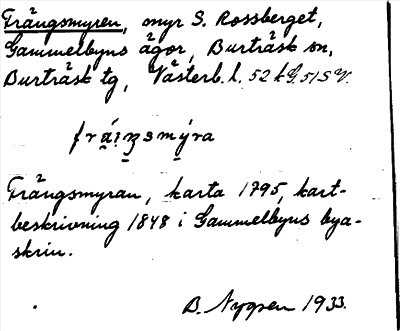 Frängsmyren, myr S. Rossberget,
Gammelbyns ägor, Burträsk sn,
Burträsk tg, Västerb. l. 52 k G. 51 S V.
Frängsmyran, karta 1795, kart-
beskrivning 1848 i Gammelbyns bya-
skrin.
B. Nygren 1933.